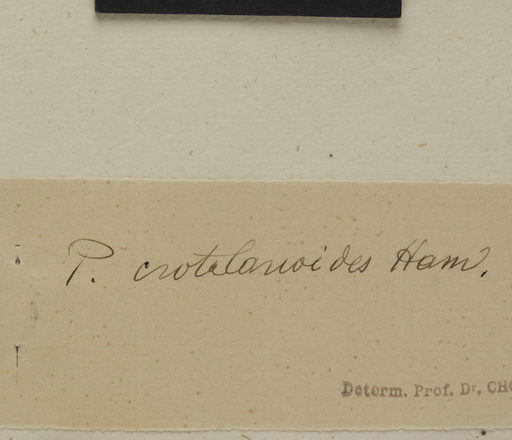 P. crotalarioides Ham.
Determ. Prof. Dr. CHO